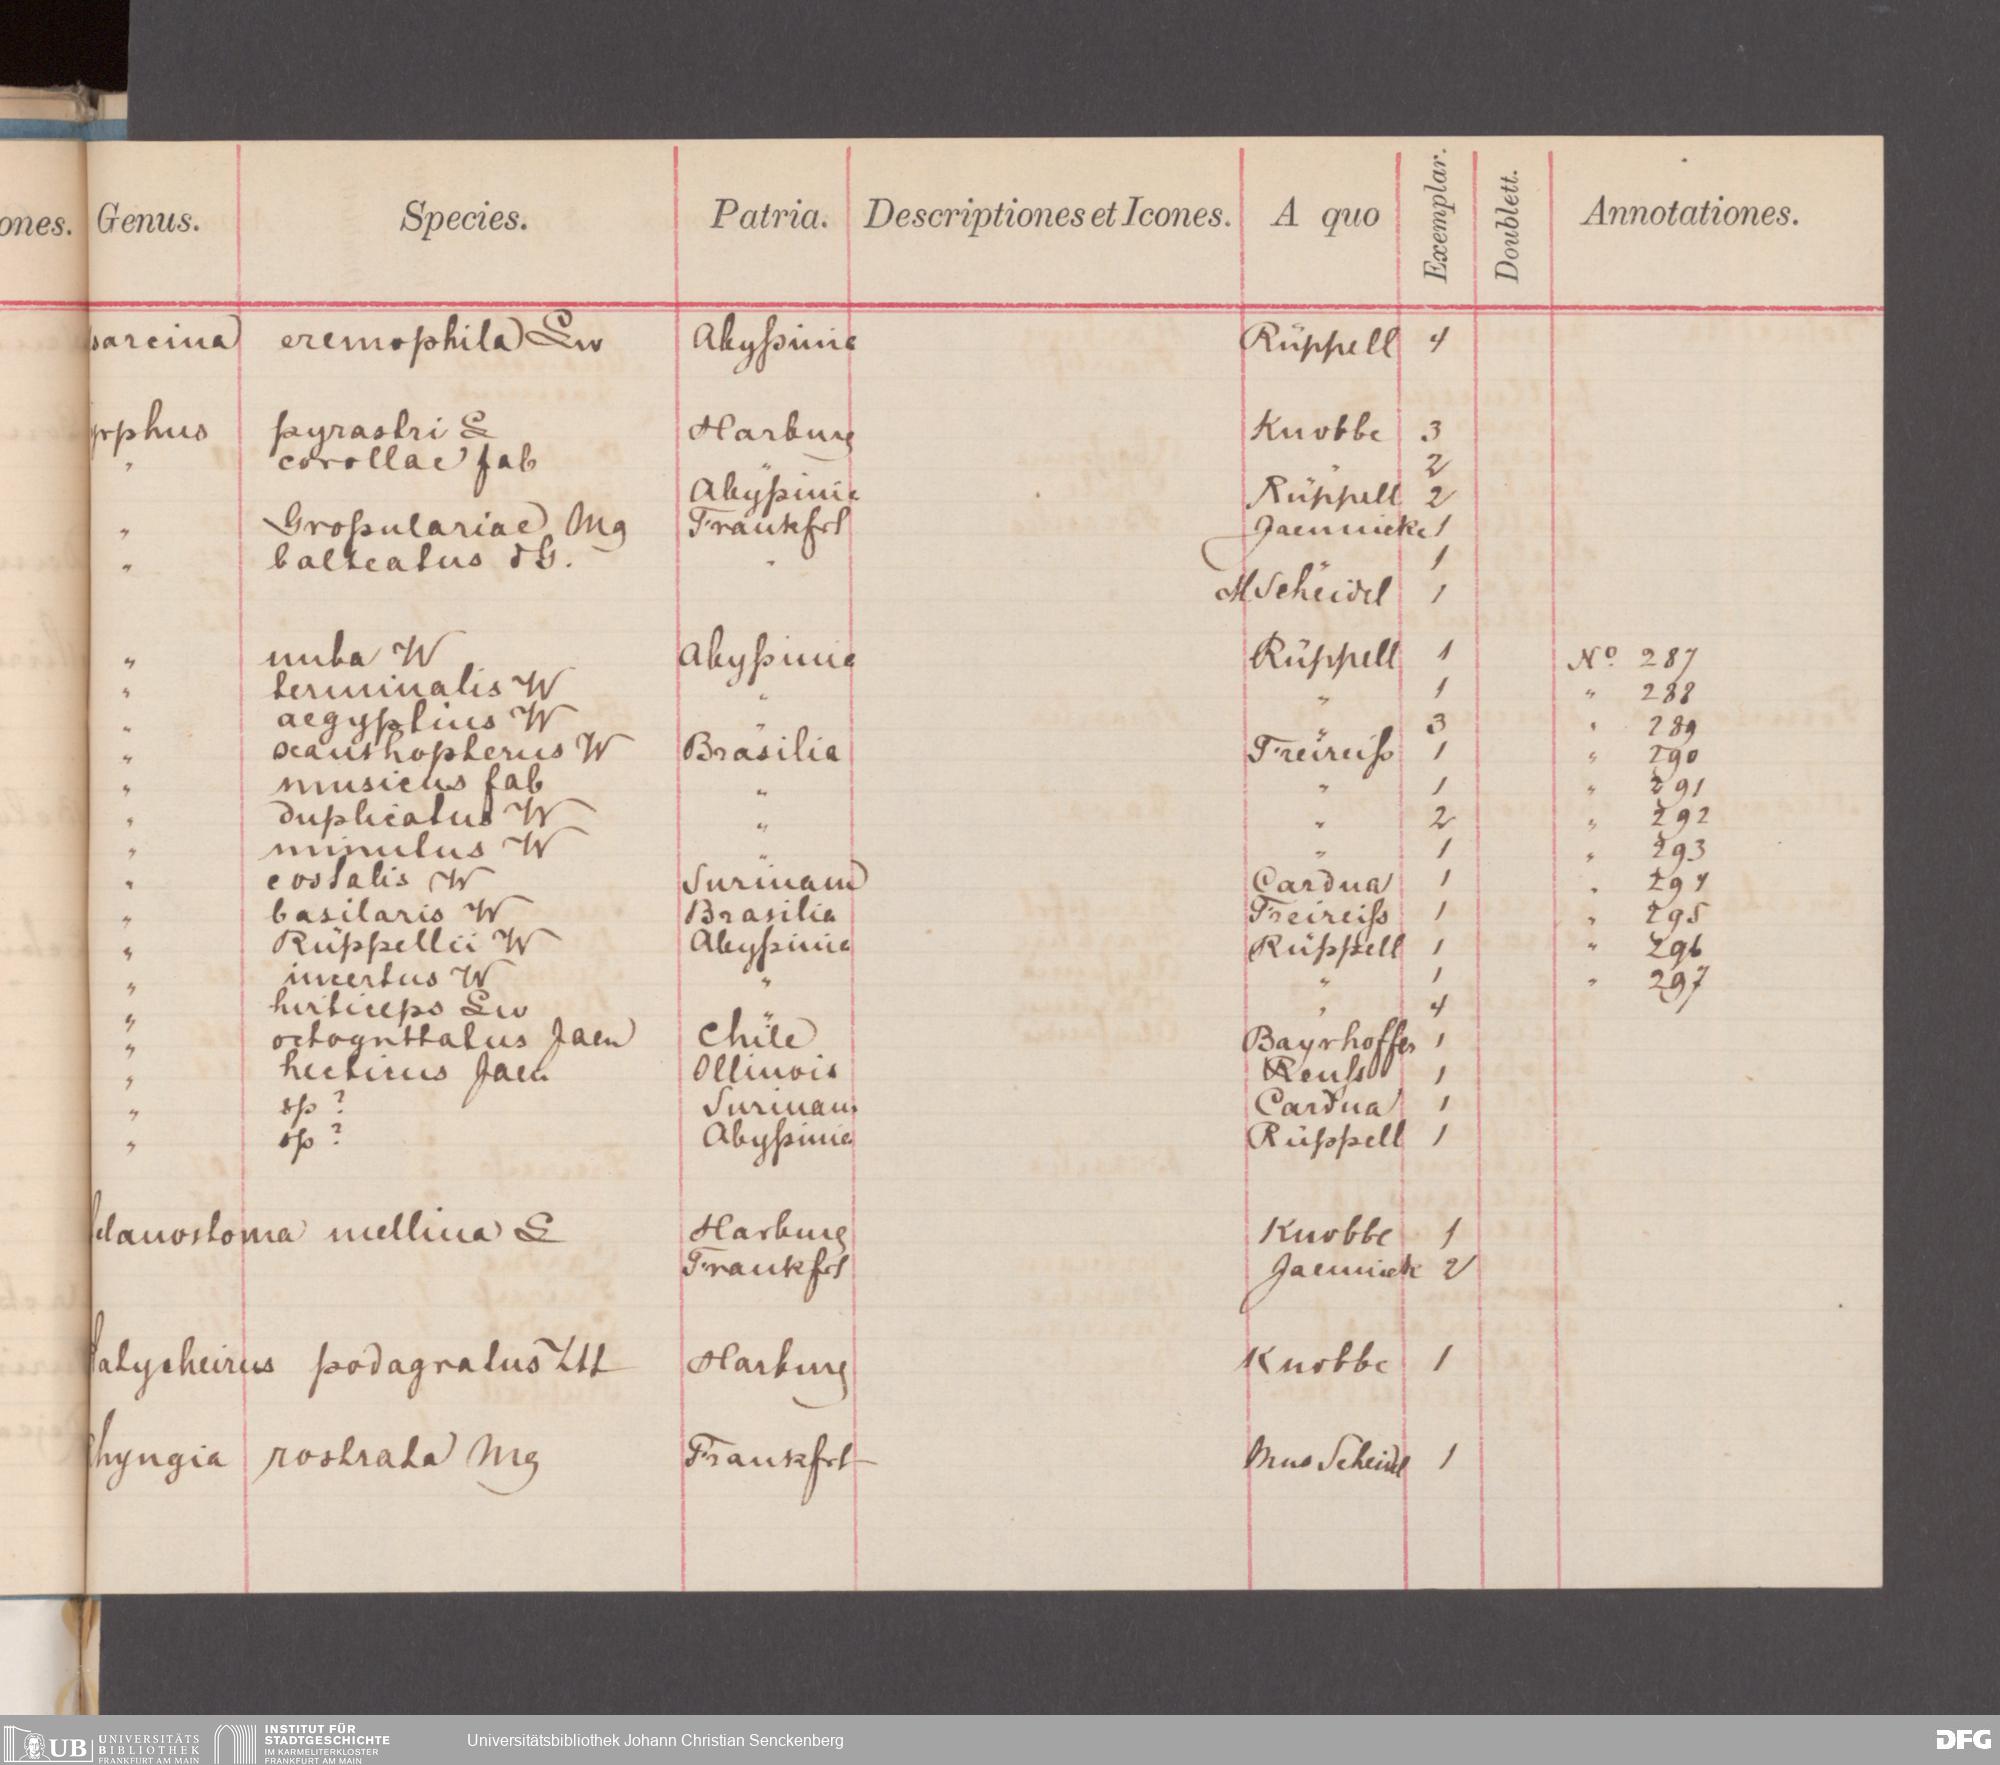 ones. Genus. Species. Patria. Descriptiones et Icones. A quo Exemplar. Doublett. Annotationes.
sarcina eremophila Lw Abyßinie Rüppell 4
yrphus pyrastri L Harburg Knobbe 3
" corollae fab " " 2
Abyßinie Rüppell 2
" Großulariae Mg Frankfrt Jaennicke 1
" balteatus dG. " " 1
M Scheidel 1
" nuba W Abyßinie Rüppell 1 No. 287
" terminalis W " " 1 " 288
" aegyptius W " " 3 " 289
" xanthopterus W Brasilia Freireiß 1 " 290
" musicus fab " " 1 " 291
" duplicatus W " " 2 " 292
" minutus W " " 1 " 293
" costalis W Surinam Cardua 1 " 294
" basilaris W Brasilia Freireiß 1 " 295
" Rüppellii W Abyßinie Rüppell 1 " 296
" incertus W " " 1 " 297
" hirticeps Lw " " 4
" octoguttatus Jaen Chile Bayrhoffer 1
" hecticus Jaen Illinois Reuß 1
" sp ? Surinam Cardua 1
" sp ? Abyßinie Rüppell 1
elanostoma mellina L Harburg Knobbe 1
Frankfrt Jaennick 2
latycheirus podagratus Ztt Harburg Knobbe 1
hyngia rostrata Mg Frankfrt Mus Scheidel 1
UB UNIVERSITÄTS
BIBLIOTHEK
FRANKFURT AM MAIN
INSTITUT FÜR
STADTGESCHICHTE
IM KARMELITERKLOSTER
FRANKFURT AM MAIN
Universitätsbibliothek Johann Christian Senckenberg
DFG